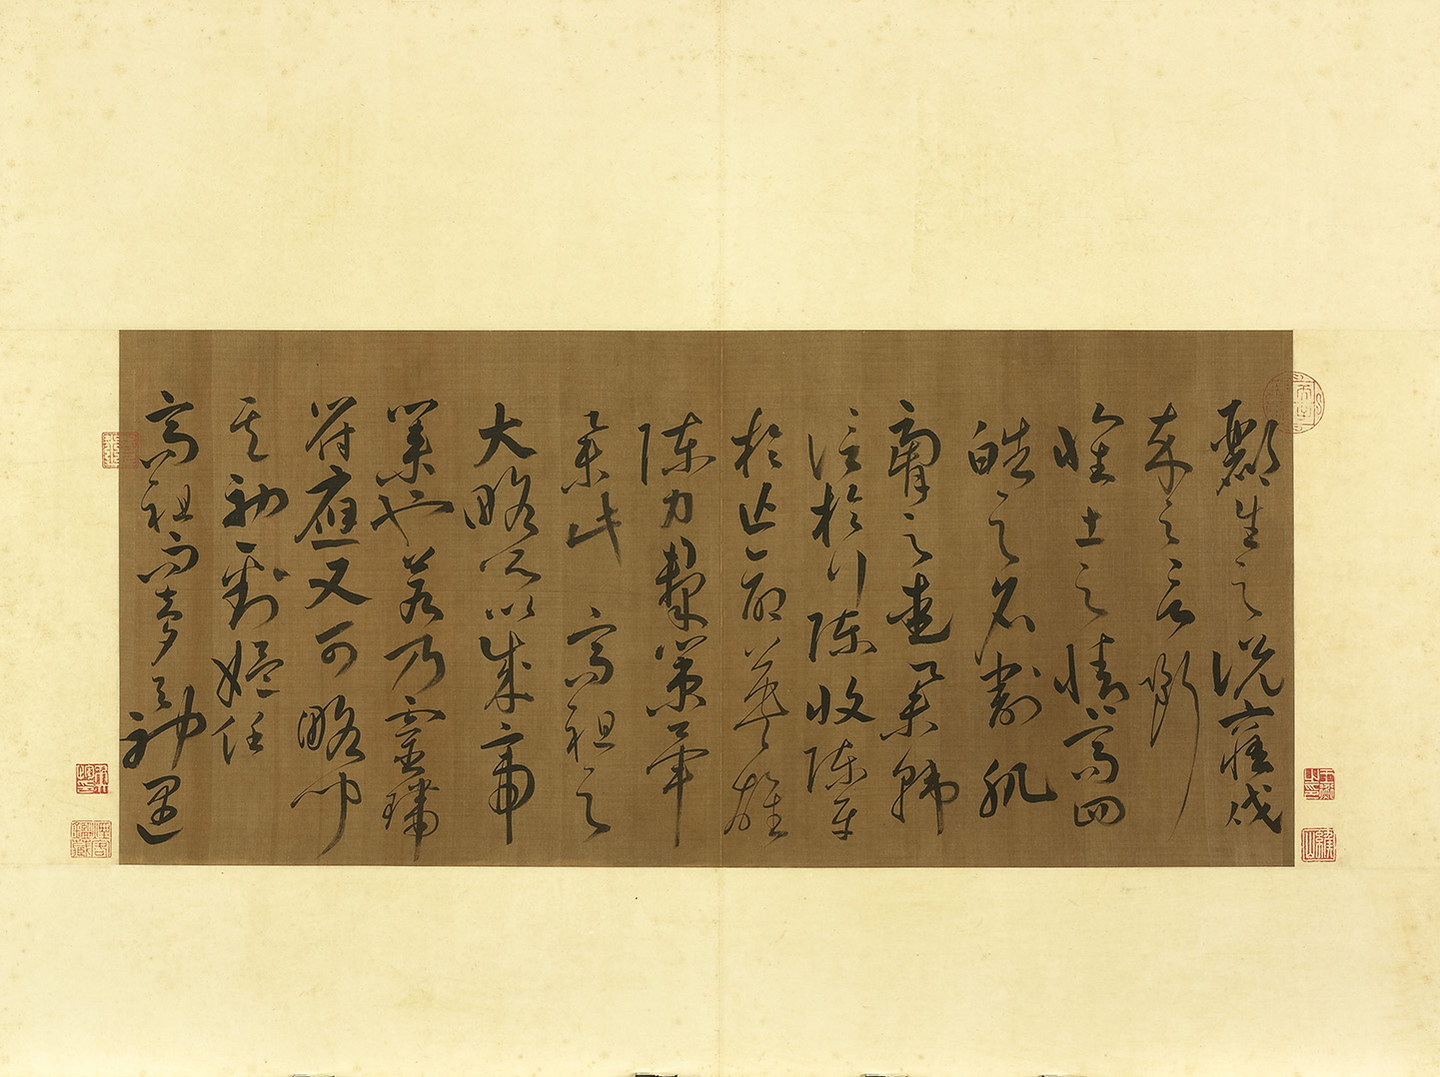 酈生之說寤戍
卒之言斷
懷土之情高四
皓之名割肌
膚之愛舉韓
信於行陳收陳平
於亡命英雄
陳力羣策畢
舉此 高祖之
大略所以成帝
業也若乃靈瑞
符應又可略聞
矣初劉媼任
高祖而夢與神遇